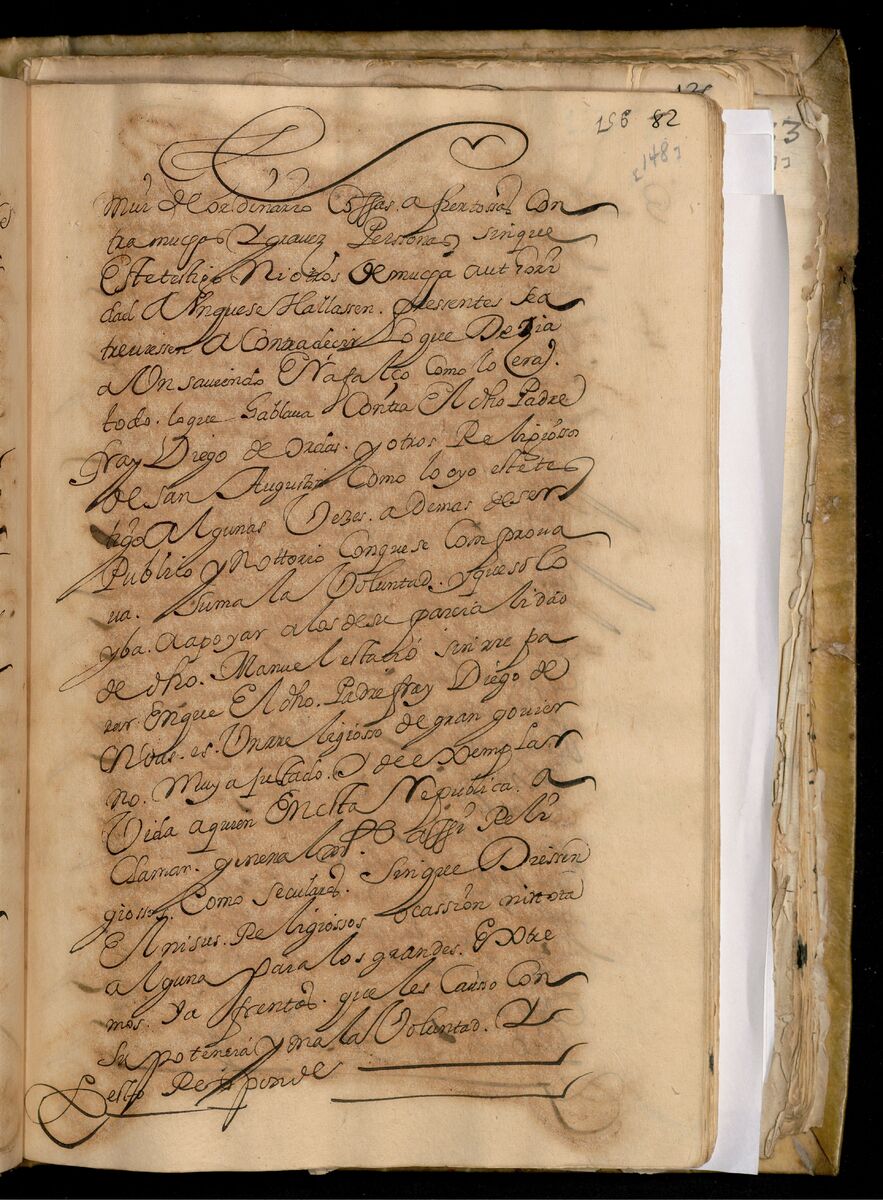 156 82
148
muy de ordinario Cossas. afrentossas Con
tra muchas Y graues Personas, sin que
Este testigo Ni otros de mucha autori
dad Aunque se Hallassen. pressentes se a
treuiessen A Contradecir Lo que Dezia
a Un sauiendo Era falço Como lo (era).
todo. lo que hablaua Contra El dho Padre
fray Diego de Ordas. y otros Religiossos
de san Augustin Como lo oyo este tes
tigo Algunas Vezes. a demas de ser
Publico y Nottorio Con que se Comprova
ua. Su mala Voluntad. y que solo
yba. a apoyar a los de su parcialidad
de dho. Manuel estacio sin rre pa
rar. En que El dho. Padre fray Diego de
Ordas. es. Un rreligiosso de gran gouier
no. Muy ajustado. Y de exemplar
Vida a quien En esta Republica. a
Clamar. generalmte. assi Reli
giossos. Como seculares. sin que Diessen
El ni sus. Religiossos ocassion ni nota
alguna para los grandes. Extre
mos. Y a frentas. que les Causo Con
Su potencia y mala Voluntad. Y
esto Responde